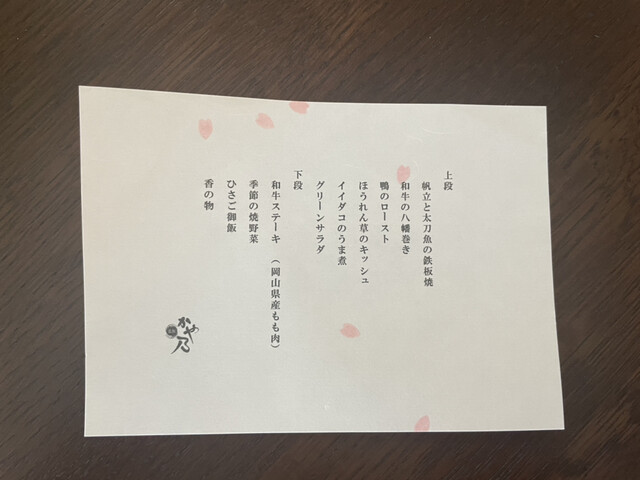 上段
帆立と太刀魚の鉄板焼
和牛の八幡巻き
鴨のロースト
ほうれん草のキッシュ
イイダコのうま煮
グリーンサラダ
下段
和牛ステーキ (岡山県産もも肉)
季節の焼野菜
ひさご御飯
香の物
かや乃